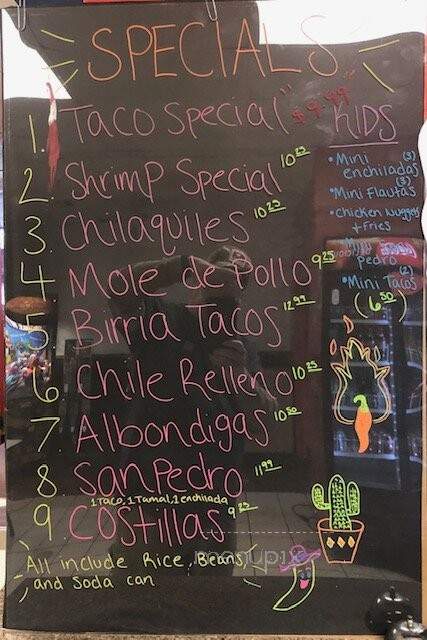 SPECIALS
1. Taco Special" $9.99
2. Shrimp Special 10.25
3. Chilaquiles 10.25
4 Mole de Pollo 9.25
5. Birria Tacos 12.99
6. Chile Relleno 10.25
7. Albondigas 10.50
8. San Pedro 11.99
1 Taco, 1 Tamal, 1 enchilada
9. Costillas 9.25
All include Rice, Beans,
and Soda can
KIDS
• Mini (3)
enchiladas
• Mini Flautas (3)
• Chicken Nuggets
+ Fries
• Mini
Pedro
• Mini Tacos (2)
(6.50)
menupix